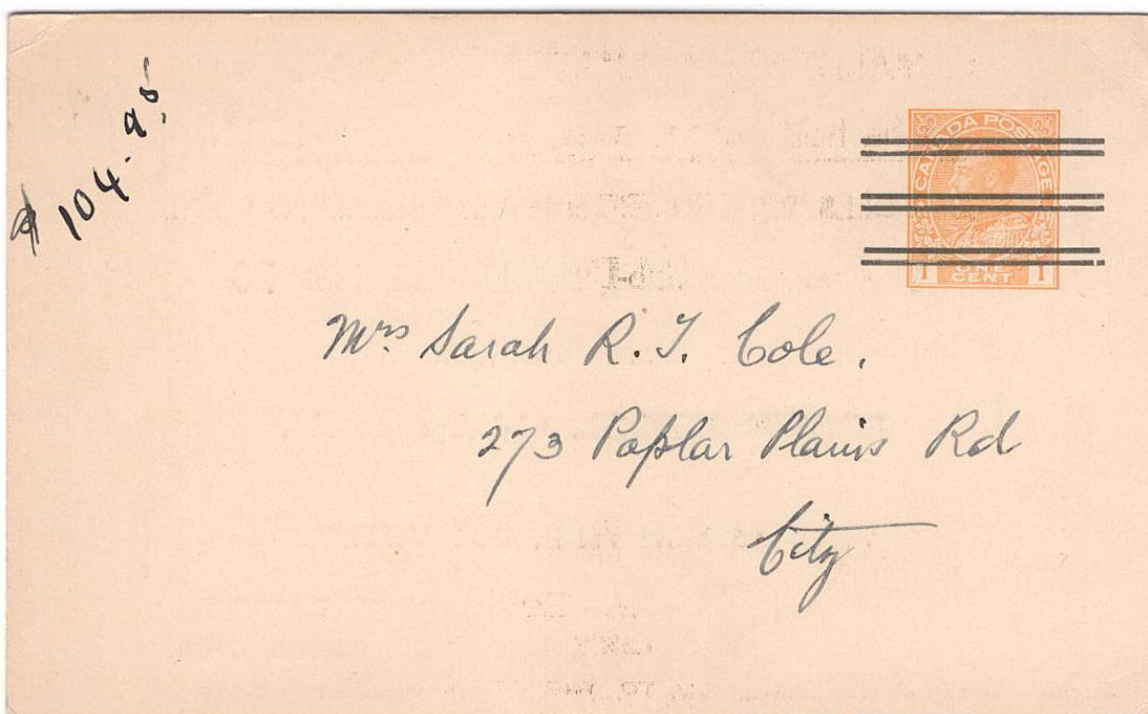 $ 104.95
CANADA POSTAGE
1 ONE CENT 1
Mrs Sarah R. T. Cole.
273 Poplar Plains Rd
City